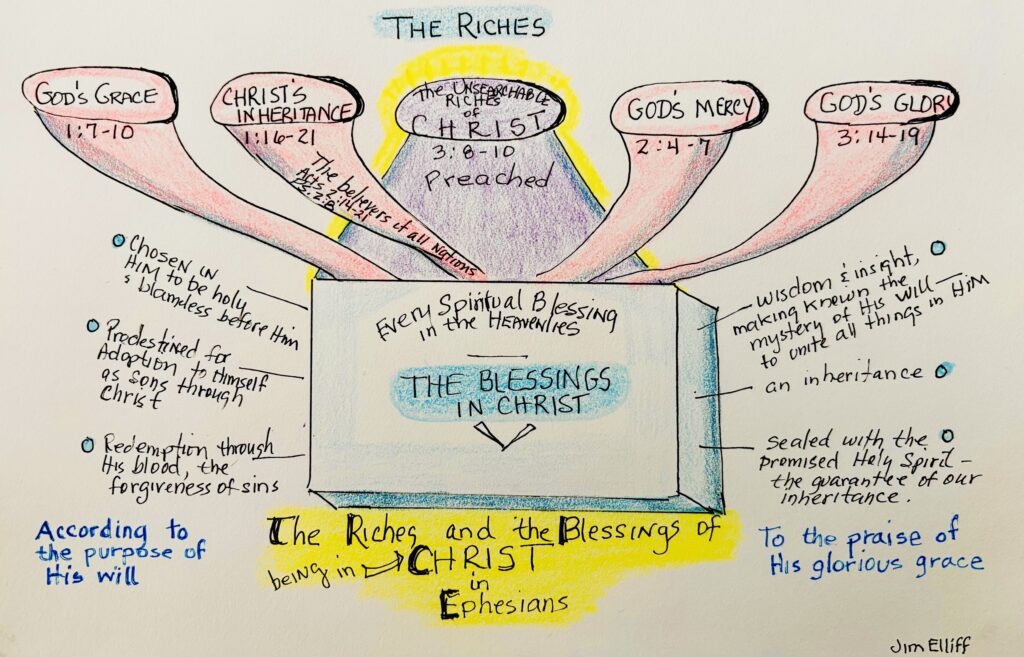 THE RICHES
GOD'S GRACE
1:7-10
CHRIST'S
INHERITANCE
1:16-21
The believers of all Nations
Acts 2:14-21
PS. 2:8
The UNSEARCHABLE
RICHES
of
CHRIST
3:8-10
Preached
GOD'S MERCY
2:4-7
GOD'S GLORY
3:14-19
Chosen in
HIM to be holy
& blameless before Him
Predestined for
Adoption to Himself
as sons through
Christ
Redemption through
His blood, the
forgiveness of sins
Every Spiritual Blessing
in the HEAVENLIES
THE BLESSINGS
IN CHRIST
wisdom & insight,
making known the
mystery of His will
to unite all things in Him
an inheritance
sealed with the
promised Holy Spirit –
the guarantee of our
inheritance.
According to
the purpose of
His will
The Riches and the Blessings of
being in CHRIST
in
Ephesians
To the praise of
His glorious grace
Jim Elliff